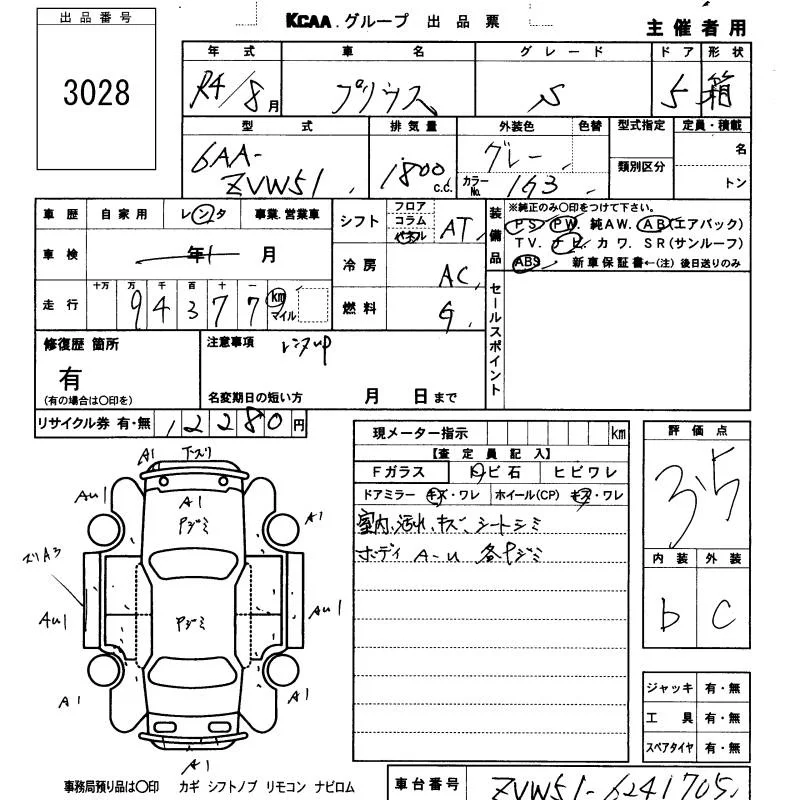 出品番号
3028
KCAA.グループ 出品票
主催者用
年式 車名 グレード ドア 形状
R4/8月 プリウス S 5 箱
型式 排気量 外装色 色替 型式指定 定員・積載
6AA-ZVW51 1800 c.c. グレー 名
カラーNo. 1G3 類別区分 トン
車歴 自家用 レンタ 事業.営業車
車検 年 月
走行 十万 万 千 百 十 一
94377 km マイル
シフト フロア コラム パネル AT
冷房 AC
燃料 G
装備品 ※純正のみ○印をつけて下さい。
PS PW. 純AW. AB(エアバック)
TV. ナビ. カワ. SR(サンルーフ)
ABS 新車保証書←(注)後日送りのみ
セールスポイント
修復歴 箇所
有
(有の場合は○印を)
注意事項 レンタUP
名変期日の短い方 月 日まで
リサイクル券 有・無 12280円
現メーター指示 km
【査定員記入】
Fガラス トビ石 ヒビワレ
ドアミラー キズ・ワレ ホイール(CP) キズ・ワレ
室内汚れ、キズ、シートシミ
ボディ A-U 各
評価点
3.5
内装 外装
b C
A1 下ズリ
AU1
A1
A1
ズリA3
AU1
AU1
A1
A1
A1
ジャッキ 有・無
工具 有・無
スペアタイヤ 有・無
事務局預り品は○印 カギ シフトノブ リモコン ナビロム
車台番号 ZVW51-6241705